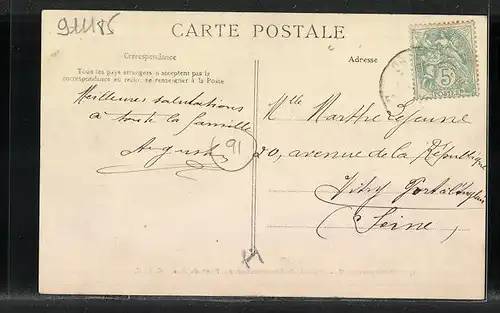 911185
CARTE POSTALE
Correspondance
Adresse
Tous les pays étrangers n'acceptent pas la
correspondance au recto, se renseigner à la Poste
5
Meilleures salutations
à toute la famille
August
91
Mlle Marthe Lejeune
20, avenue de la République
Vitry Port à l'Anglais
(Seine)